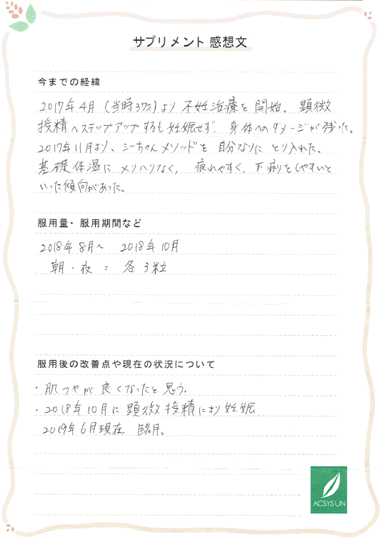 サプリメント 感想文
今までの経緯
2017年4月(当時37才)より 不妊治療を開始。顕微
授精へステップアップするも妊娠せず 身体へのダメージが残った。
2017年11月より、シーちゃんメソッドを自分なりに とり入れた。
基礎体温に メリハリなく、疲れやすく、下痢をしやすいと
いった傾向があった。
服用量・服用期間など
2018年8月〜 2018年10月
朝・夜 : 各3粒
服用後の改善点や現在の状況について
・肌つやが良くなったと思う。
・2018年10月に 顕微授精により 妊娠
2019年6月現在 臨月。
ACSYSUN